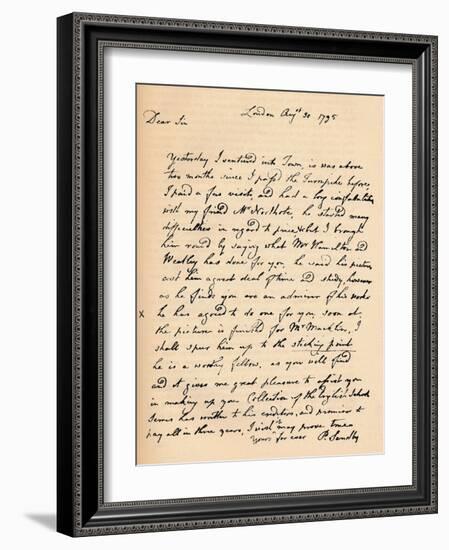 London Augst 30 1795
Dear Sir
Yesterday I ventured into Town, is was above
two months since I passd the Turnpike before,
I paid a few visits and had a long confabulation
with my friend Mr Northcote, he stated many
difficulties in regard to price, but I brought
him round by saying what Mr Hamilton and
Weatley has done for you, he said his pictures
cost him a great deal of time and study, however
as he finds you are an admirer of his works
x he has agreed to do one for you, soon as
the picture is finishd for Mr Macklin, I
shall spur him up to the sticking point
he is a worthy fellow, as you will find
and it gives me great pleasure to assist you
in making up your Collection of the English School
has written to his creditors, and promises to
pay all in three years, I wish may prove true
yours for ever P. Sandby